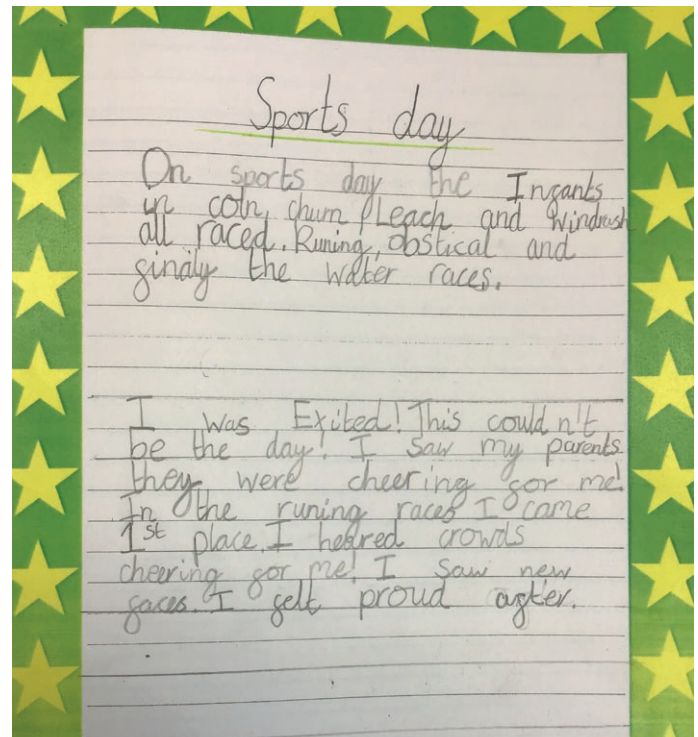 Sports day
On sports day the Infants
in coln, churn, Leach and Windrush
all raced. Runing, obstical and
finally the water races.
I was Exited! This couldn't
be the day! I saw my parents
they were cheering for me!
In the runing races I came
1st place. I heared crowds
cheering for me! I saw new
faces. I felt proud after.